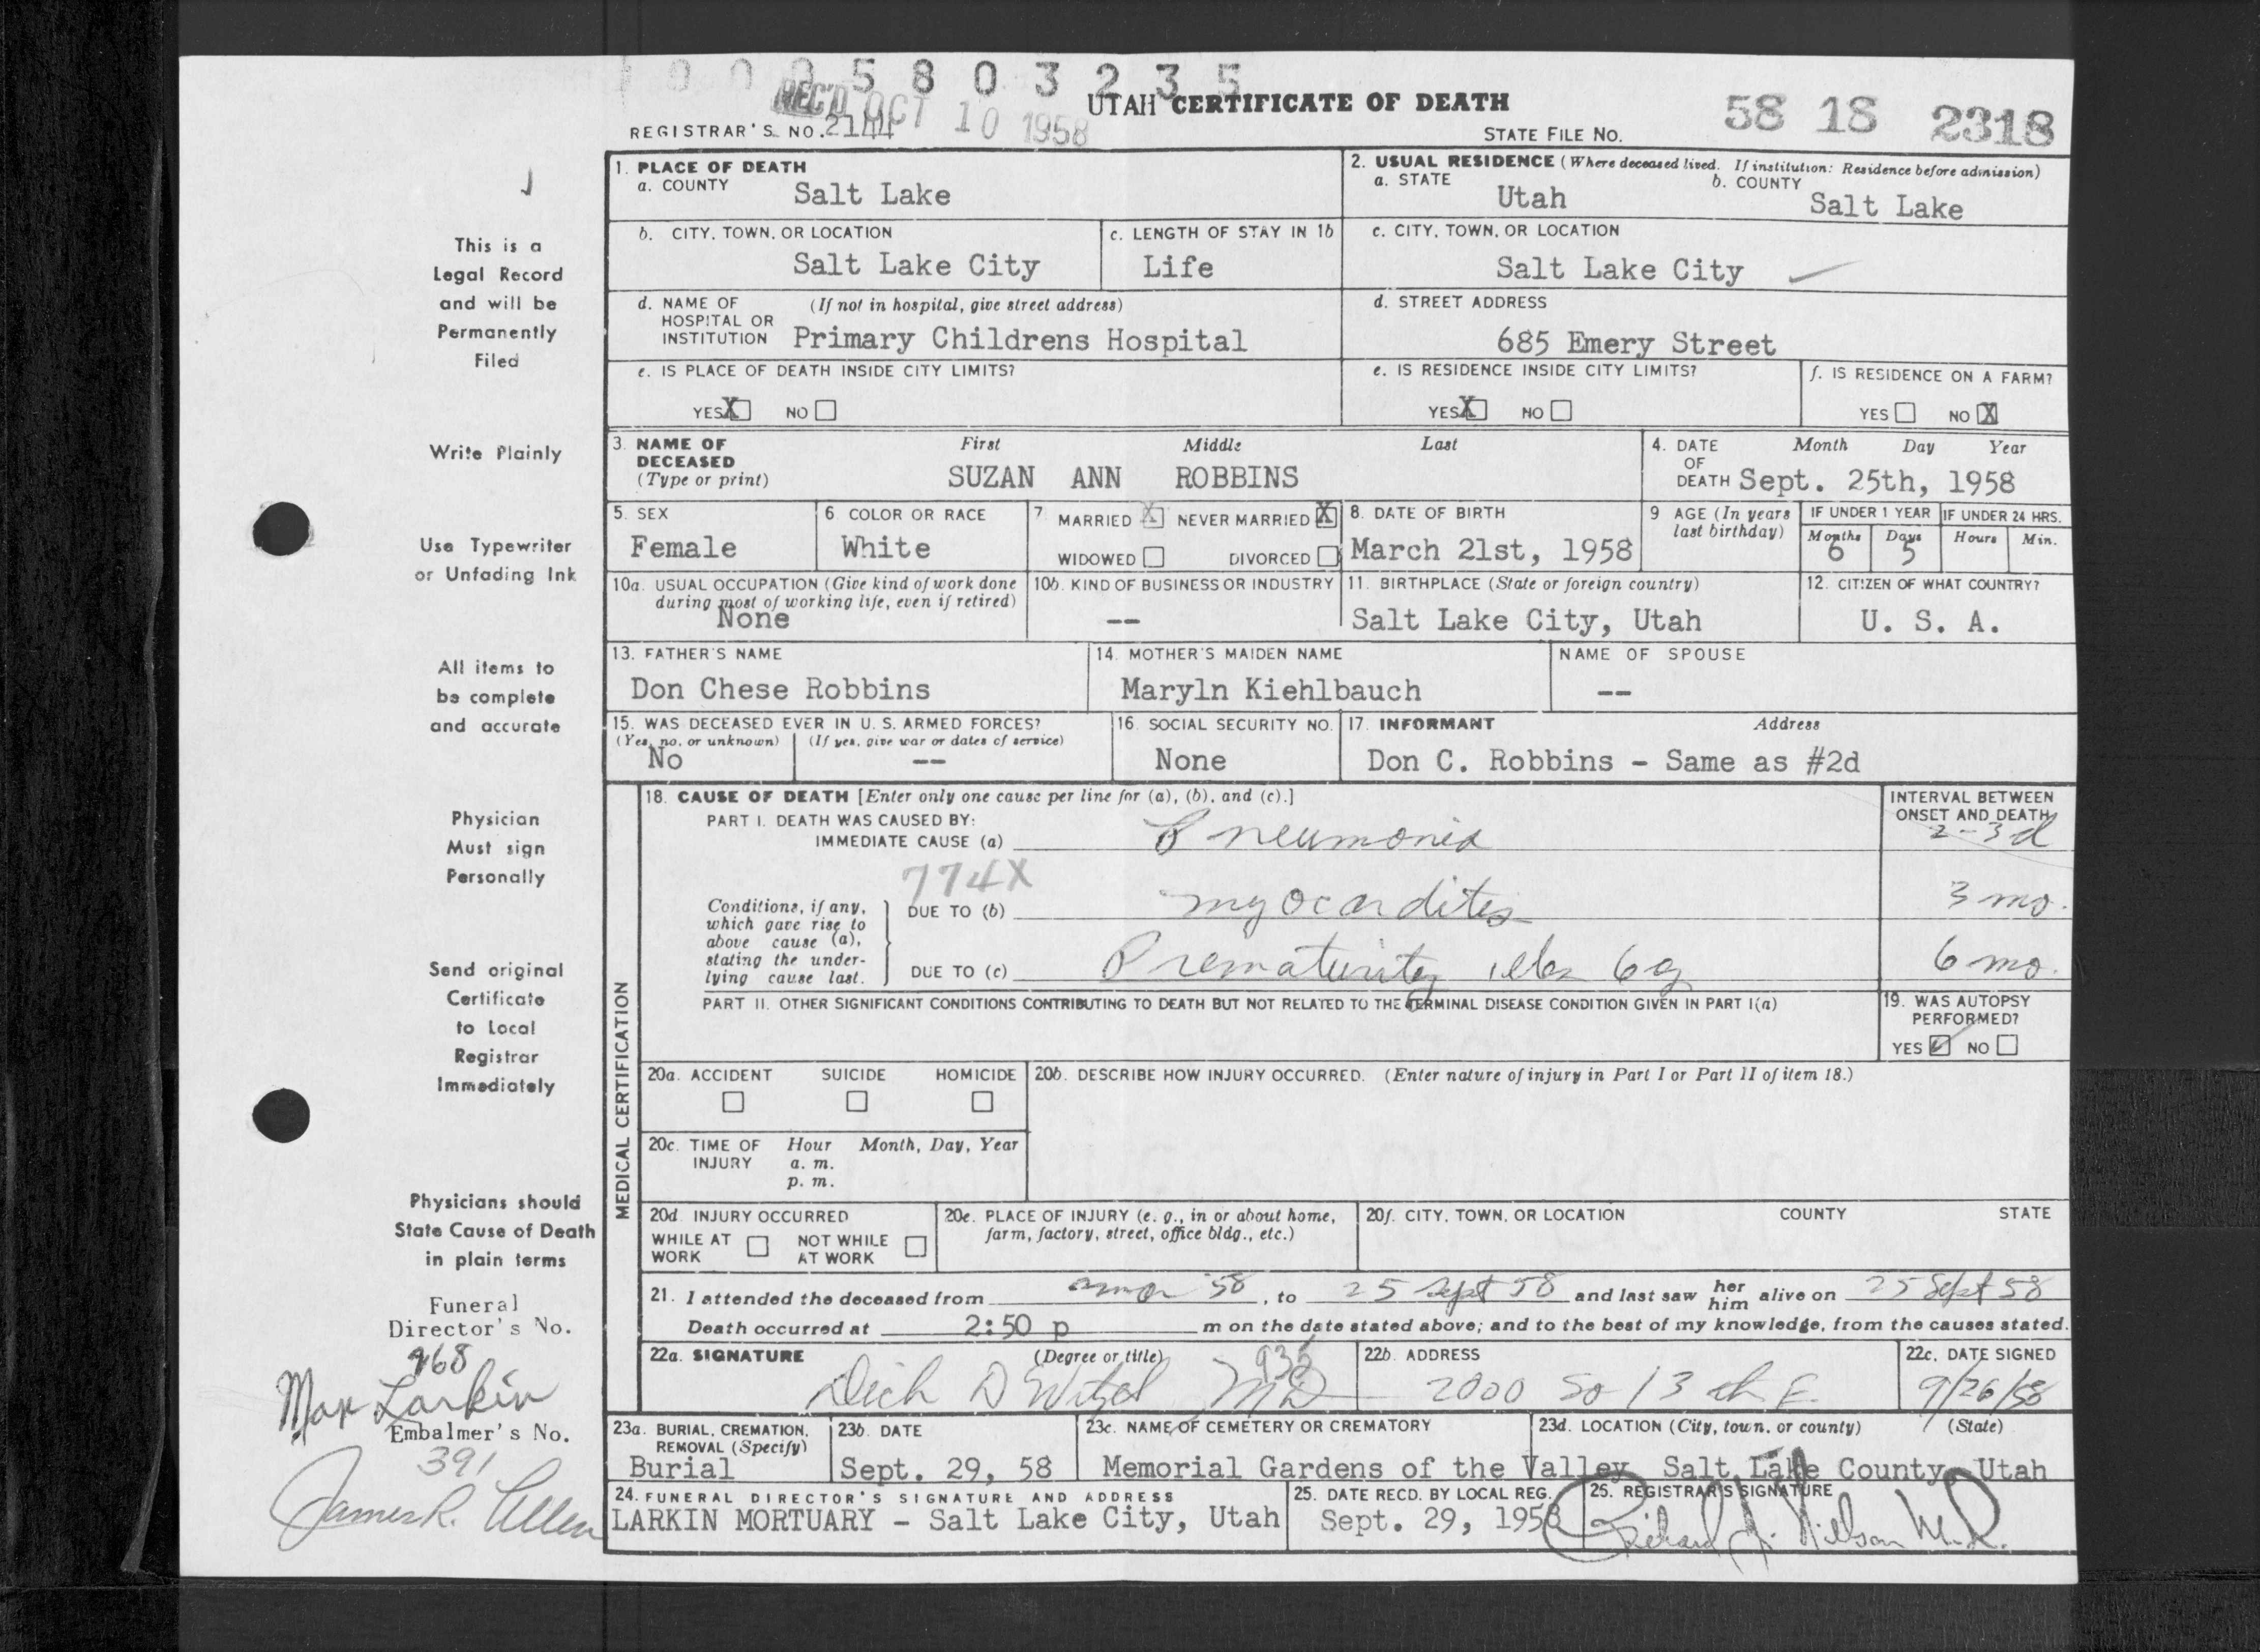 0 0 0 5 8 0 3 2 3 5
REC'D OCT 10 1958
UTAH CERTIFICATE OF DEATH
REGISTRAR'S NO. 2144
STATE FILE NO. 58 18 2318
This is a
Legal Record
and will be
Permanently
Filed
Write Plainly
Use Typewriter
or Unfading Ink
All items to
be complete
and accurate
Physician
Must sign
Personally
Send original
Certificate
to Local
Registrar
Immediately
Physicians should
State Cause of Death
in plain terms
Funeral
Director's No.
968
Max Larkin
Embalmer's No.
391
James R. Allen
1. PLACE OF DEATH
a. COUNTY Salt Lake
2. USUAL RESIDENCE (Where deceased lived. If institution: Residence before admission)
a. STATE Utah b. COUNTY Salt Lake
b. CITY, TOWN, OR LOCATION Salt Lake City
c. LENGTH OF STAY IN 1b Life
c. CITY, TOWN, OR LOCATION Salt Lake City
d. NAME OF HOSPITAL OR INSTITUTION (If not in hospital, give street address) Primary Childrens Hospital
d. STREET ADDRESS 685 Emery Street
e. IS PLACE OF DEATH INSIDE CITY LIMITS?
YES X NO
e. IS RESIDENCE INSIDE CITY LIMITS?
YES X NO
f. IS RESIDENCE ON A FARM?
YES NO X
3. NAME OF DECEASED (Type or print) First Middle Last
SUZAN ANN ROBBINS
4. DATE OF DEATH Month Day Year
Sept. 25th, 1958
5. SEX Female
6 COLOR OR RACE White
7. MARRIED X NEVER MARRIED X
WIDOWED DIVORCED
8. DATE OF BIRTH March 21st, 1958
9 AGE (In years last birthday)
IF UNDER 1 YEAR Months 6 Days 5
IF UNDER 24 HRS. Hours Min.
10a. USUAL OCCUPATION (Give kind of work done during most of working life, even if retired) None
10b. KIND OF BUSINESS OR INDUSTRY --
11. BIRTHPLACE (State or foreign country) Salt Lake City, Utah
12. CITIZEN OF WHAT COUNTRY? U. S. A.
13. FATHER'S NAME Don Chese Robbins
14. MOTHER'S MAIDEN NAME Maryln Kiehlbauch
NAME OF SPOUSE --
15. WAS DECEASED EVER IN U. S. ARMED FORCES?
(Yes, no, or unknown) No (If yes, give war or dates of service) --
16. SOCIAL SECURITY NO. None
17. INFORMANT Address
Don C. Robbins - Same as #2d
MEDICAL CERTIFICATION
18. CAUSE OF DEATH [Enter only one cause per line for (a), (b), and (c).]
INTERVAL BETWEEN ONSET AND DEATH
PART I. DEATH WAS CAUSED BY:
IMMEDIATE CAUSE (a) Pneumonia 2-3 d
774X
Conditions, if any, which gave rise to above cause (a), stating the underlying cause last.
DUE TO (b) myocarditis 3 mo.
DUE TO (c) Prematurity 6 mo.
PART II. OTHER SIGNIFICANT CONDITIONS CONTRIBUTING TO DEATH BUT NOT RELATED TO THE TERMINAL DISEASE CONDITION GIVEN IN PART I(a)
19. WAS AUTOPSY PERFORMED?
YES ✓ NO
20a. ACCIDENT SUICIDE HOMICIDE
20b. DESCRIBE HOW INJURY OCCURRED. (Enter nature of injury in Part I or Part II of item 18.)
20c. TIME OF INJURY Hour Month, Day, Year
a. m.
p. m.
20d. INJURY OCCURRED
WHILE AT WORK NOT WHILE AT WORK
20e. PLACE OF INJURY (e. g., in or about home, farm, factory, street, office bldg., etc.)
20f. CITY, TOWN, OR LOCATION COUNTY STATE
21. I attended the deceased from 58, to 25 Sept 58 and last saw her him alive on 25 Sept 58
Death occurred at 2:50 p m on the date stated above; and to the best of my knowledge, from the causes stated.
22a. SIGNATURE (Degree or title) 935
Dick D Witzel MD
22b. ADDRESS 2000 So 13th E.
22c. DATE SIGNED 9/26/58
23a. BURIAL, CREMATION, REMOVAL (Specify) Burial
23b. DATE Sept. 29, 58
23c. NAME OF CEMETERY OR CREMATORY Memorial Gardens of the Valley
23d. LOCATION (City, town, or county) (State) Salt Lake County, Utah
24. FUNERAL DIRECTOR'S SIGNATURE AND ADDRESS
LARKIN MORTUARY - Salt Lake City, Utah
25. DATE RECD. BY LOCAL REG. Sept. 29, 1958
25. REGISTRAR'S SIGNATURE
Richard J. Nilson M.D.